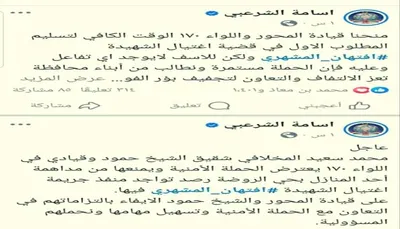 اسامة الشرعبي
١ س
منحنا قيادة المحور واللواء ١٧٠ الوقت الكافي لتسليم
المطلوب الاول في قضية اغتيال الشهيدة
#افتهان_المشهري ولكن للاسف لايوجد اي تفاعل
وعليه فإن الحملة مستمرة ونطالب من أبناء محافظة
تعز الالتفاف والتعاون لتجفيف بؤر الفو... عرض المزيد
محمد بن معاذ و١٬٤٠١ ٣١٤ تعليقًا ٨٥ مشاركة
أعجبني تعليق مشاركة
اسامة الشرعبي
١ س
عاجل
محمد سعيد المخلافي شقيق الشيخ حمود وقيادي في
اللواء ١٧٠ يعترض الحملة الأمنية ويمنعها من مداهمة
أحد المنازل بحي الروضة رصد تواجد منفذ جريمة
اغتيال الشهيدة #افتهان_المشهري فيها.
على قيادة المحور والشيخ حمود الايفاء بالتزاماتهم في
التعاون مع الحملة الأمنية وتسهيل مهامها ونحملهم
المسؤولية.